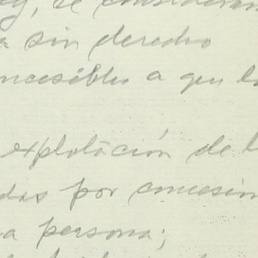 se consideran
a sin derecho
a que l
explotación de l
das por concesion
a persona;